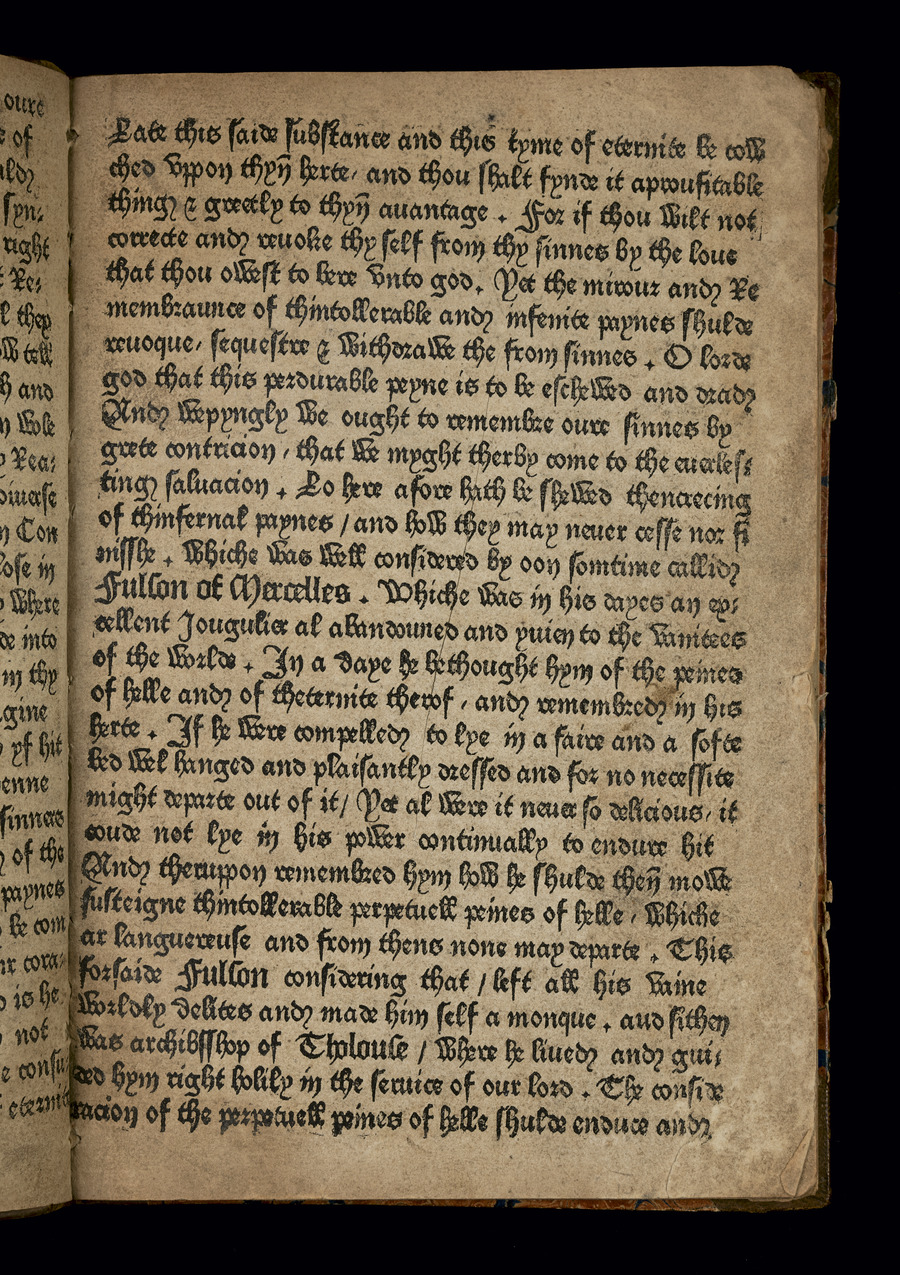 oure
e of
ald
syn,
right
t Re,
l they
W tell
h and
n Wole
o Rea,
diuerse
n Con
lose in
o Where
de into
in thy
gine
yf hit
enne
sinners
of the
paynes
be com
ir cora,
o is he
not
e consu,
eternit
Late this saide substance and this tyme of eternite be cow
ched vppon thyn̄ herte, and thou shalt fynde it aproufitable
thing & greetly to thyn̄ auantage . For if thou wilt not
correcte and reuoke thy self from thy sinnes by the loue
that thou owest to bere vnto god. Yet the mirour and Re
membraunce of thintollerable and infenite paynes shulde
reuoque, sequestre & withdrawe the from sinnes . O lorde
god that this perdurable peyne is to be eschewed and drad
And wepyngly we ought to remembre oure sinnes by
grete contricion, that we myght therby come to the euerles,
ting saluacion . Lo here afore hath be shewed thencrecing
of thinfernal paynes / and how they may neuer cesse nor fi
nisshe . Whiche was well considered by oon somtime callid
Fulson of Mercelles . Whiche was in his dayes an ex,
cellent Jougulier al abandouned and yuien to the vanitees
of the worlde . In a daye he bethought hym of the peines
of helle and of theternite therof, and remembred in his
herte . If he were compelled to lye in a faire and a softe
bed wel hanged and plaisantly dressed and for no necessite
might departe out of it / Yet al were it neuer so delicious, it
coude not lye in his power continually to endure hit
And theruppon remembred hym how he shulde then̄ mowe
susteigne thintollerable perpetuell peines of helle, whiche
ar languereuse and from thens none may departe . This
forsaide Fulson considering that / left all his vaine
worldly delites and made him self a monque . aud sithen
was archibsshop of Tholouse / where he liued and gui,
ded hym right holily in the seruice of our lord . The conside
racion of the perpetuell peines of helle shulde enduce and